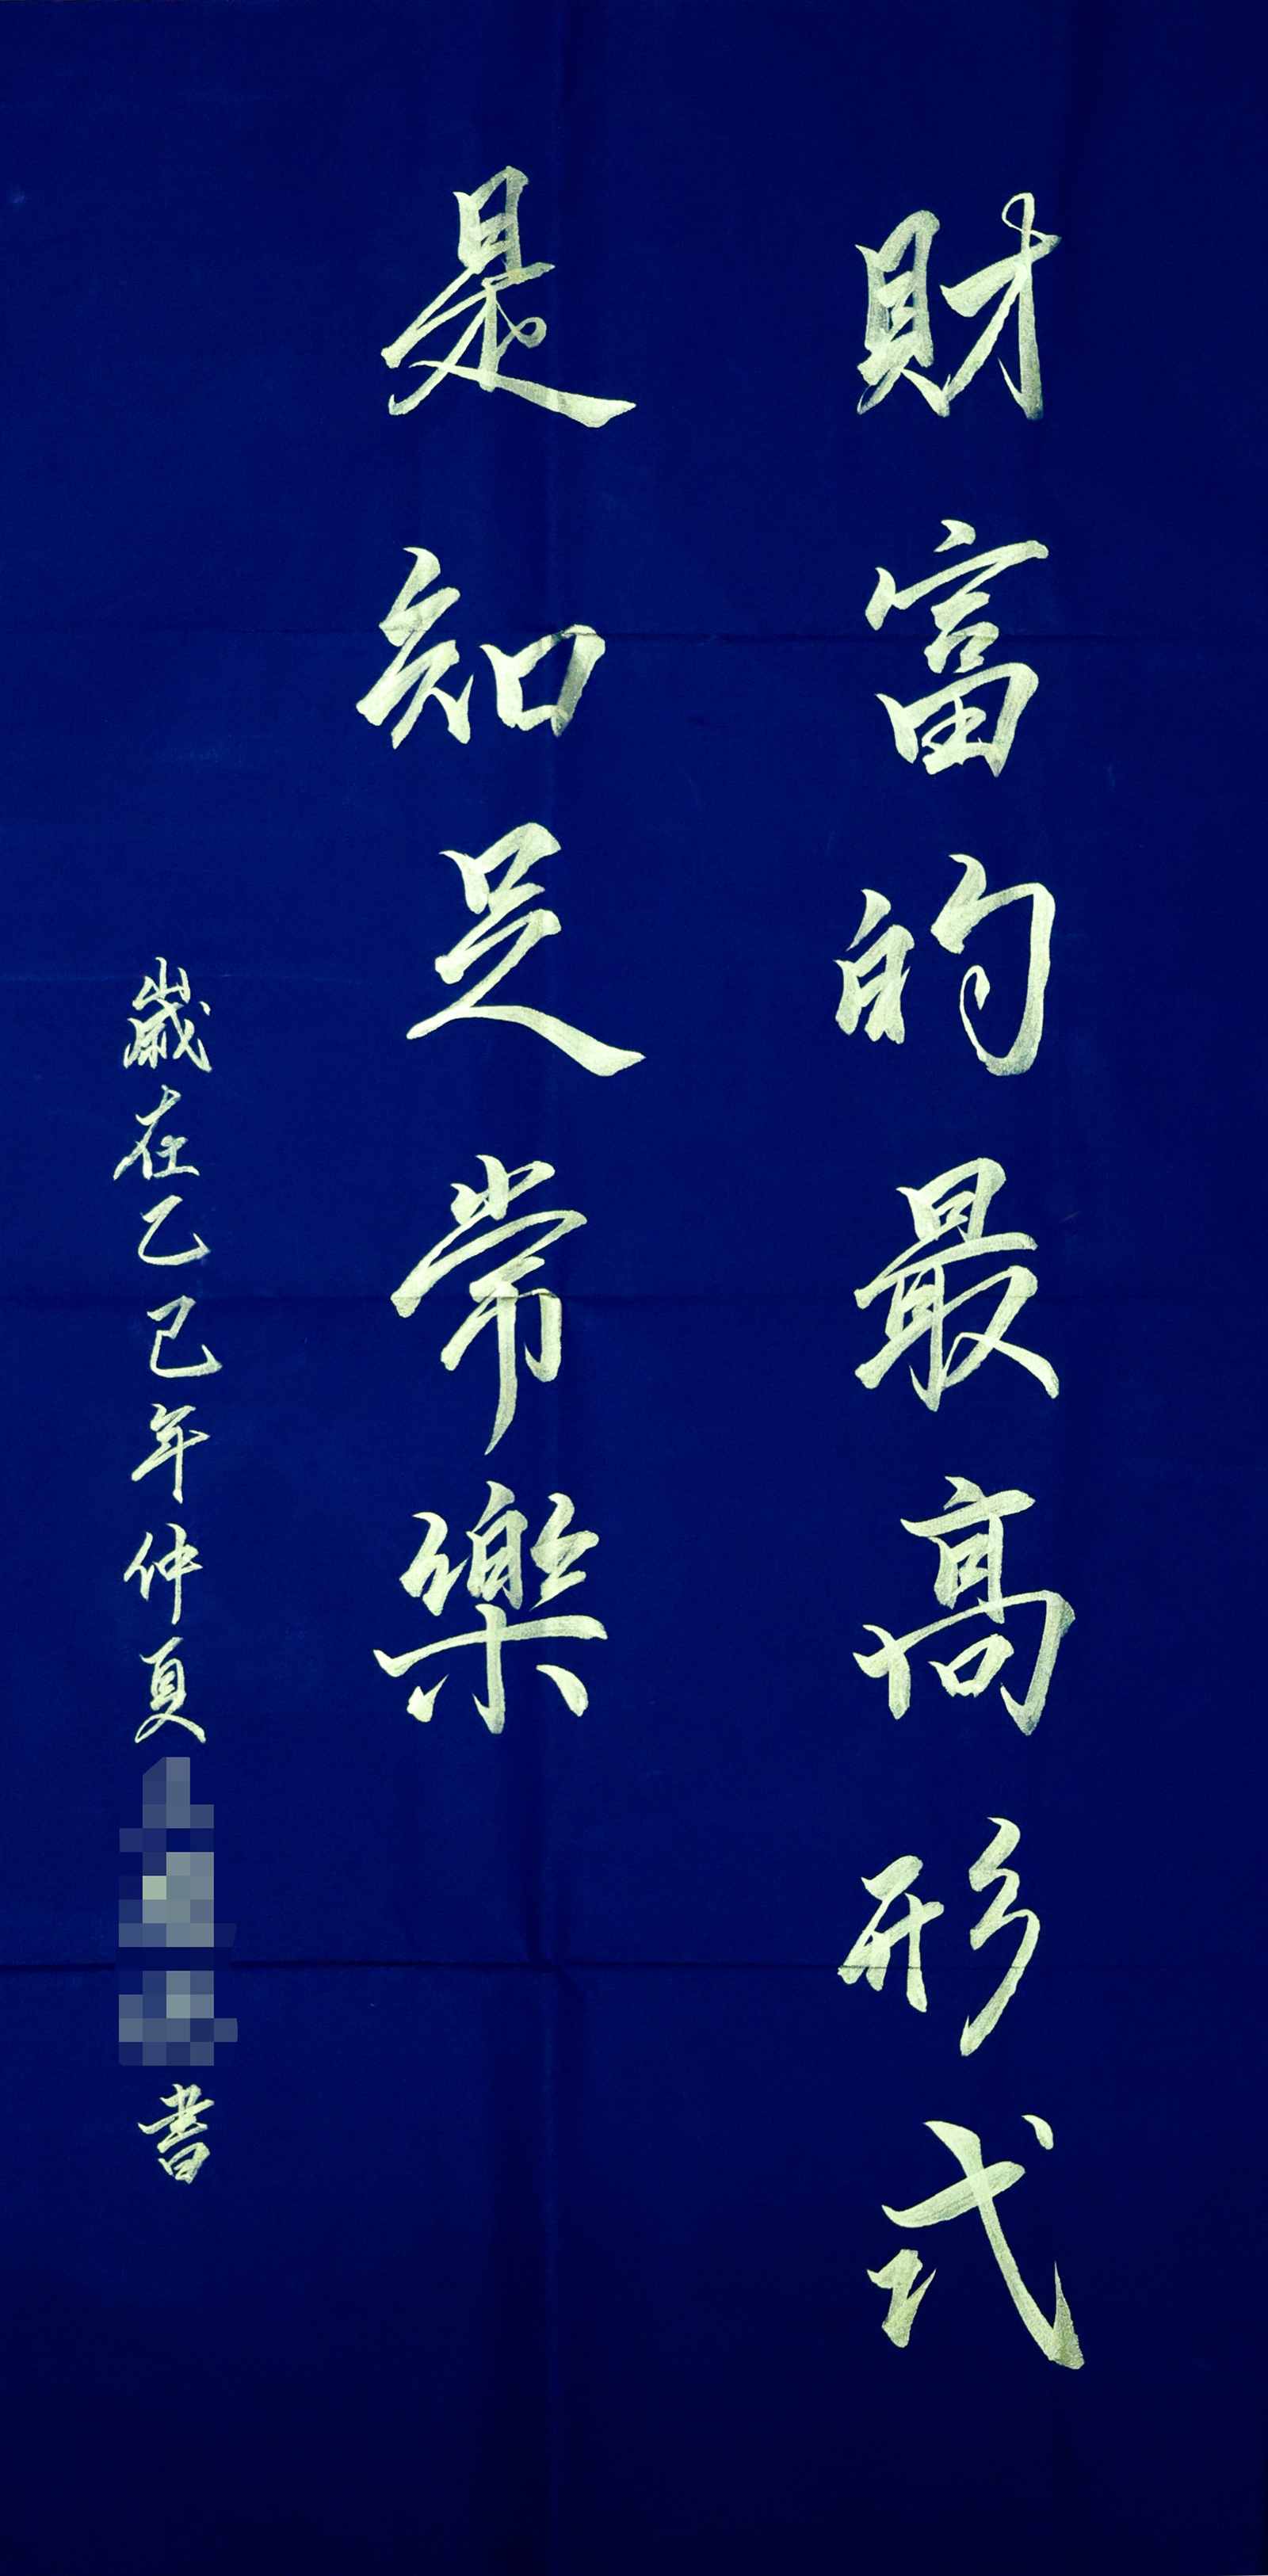 財富的最高形式
是知足常樂
歲在乙巳年仲夏
書